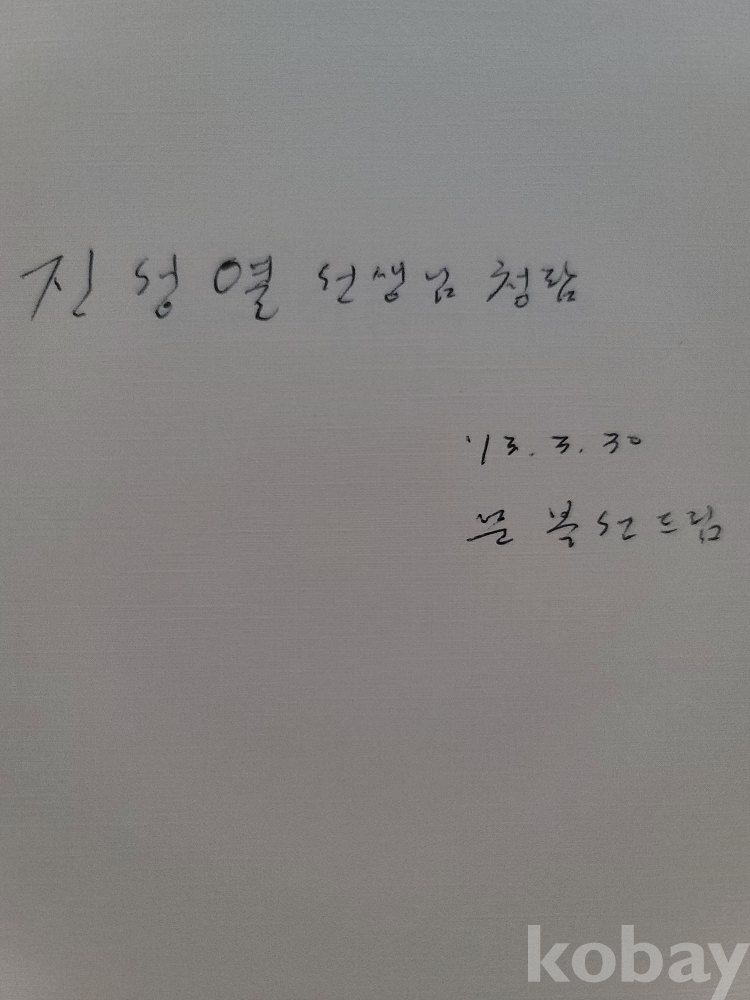 진 성 열 선생님 청람
'13. 3. 30
문 복 선 드림
kobay